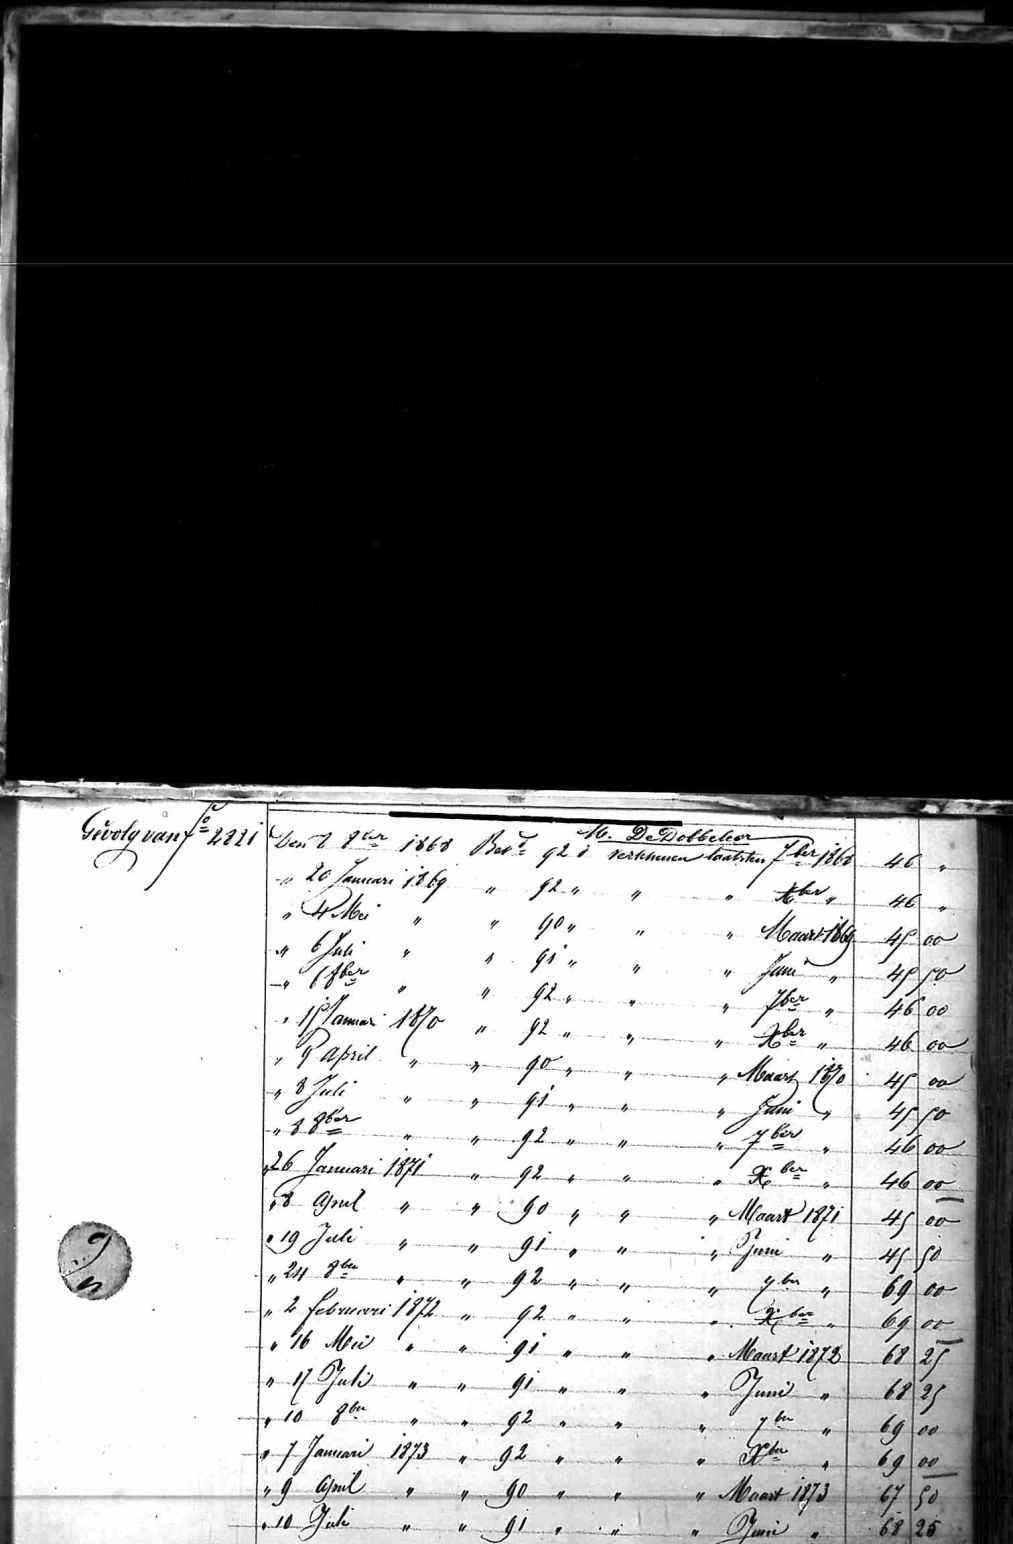 M. De Dobbeleer
Gevolg van fo 2221 Den 8ber 1868 Bet 92 d verschenen laatsten 7ber 1868 46 "
" 20 Januari 1869 " 92 " " " Xber " 46 "
" 4 Mei " " 90 " " " Maart 1869 45 00
" 6 Juli " " 91 " " " Juni " 45 50
" 6 8ber " " 92 " " " 7ber " 46 00
" 15 Januari 1870 " 92 " " " Xber " 46 00
" 9 April " " 90 " " " Maart 1870 45 00
" 8 Juli " " 91 " " " Juni " 45 50
" 8 8ber " " 92 " " " 7ber " 46 00
" 26 Januari 1871 " 92 " " " Xber " 46 00
" 8 April " " 90 " " " Maart 1871 45 00
" 19 Juli " " 91 " " " Juni " 45 50
" 24 8ber " " 92 " " " 7ber " 69 00
" 2 februari 1872 " 92 " " " Xber " 69 00
" 16 Mei " " 91 " " " Maart 1872 68 25
" 17 Juli " " 91 " " " Juni " 68 25
" 10 8ber " " 92 " " " 7ber " 69 00
" 7 Januari 1873 " 92 " " " Xber " 69 00
" 9 April " " 90 " " " Maart 1873 67 50
" 10 Juli " " 91 " " " Juni " 68 25